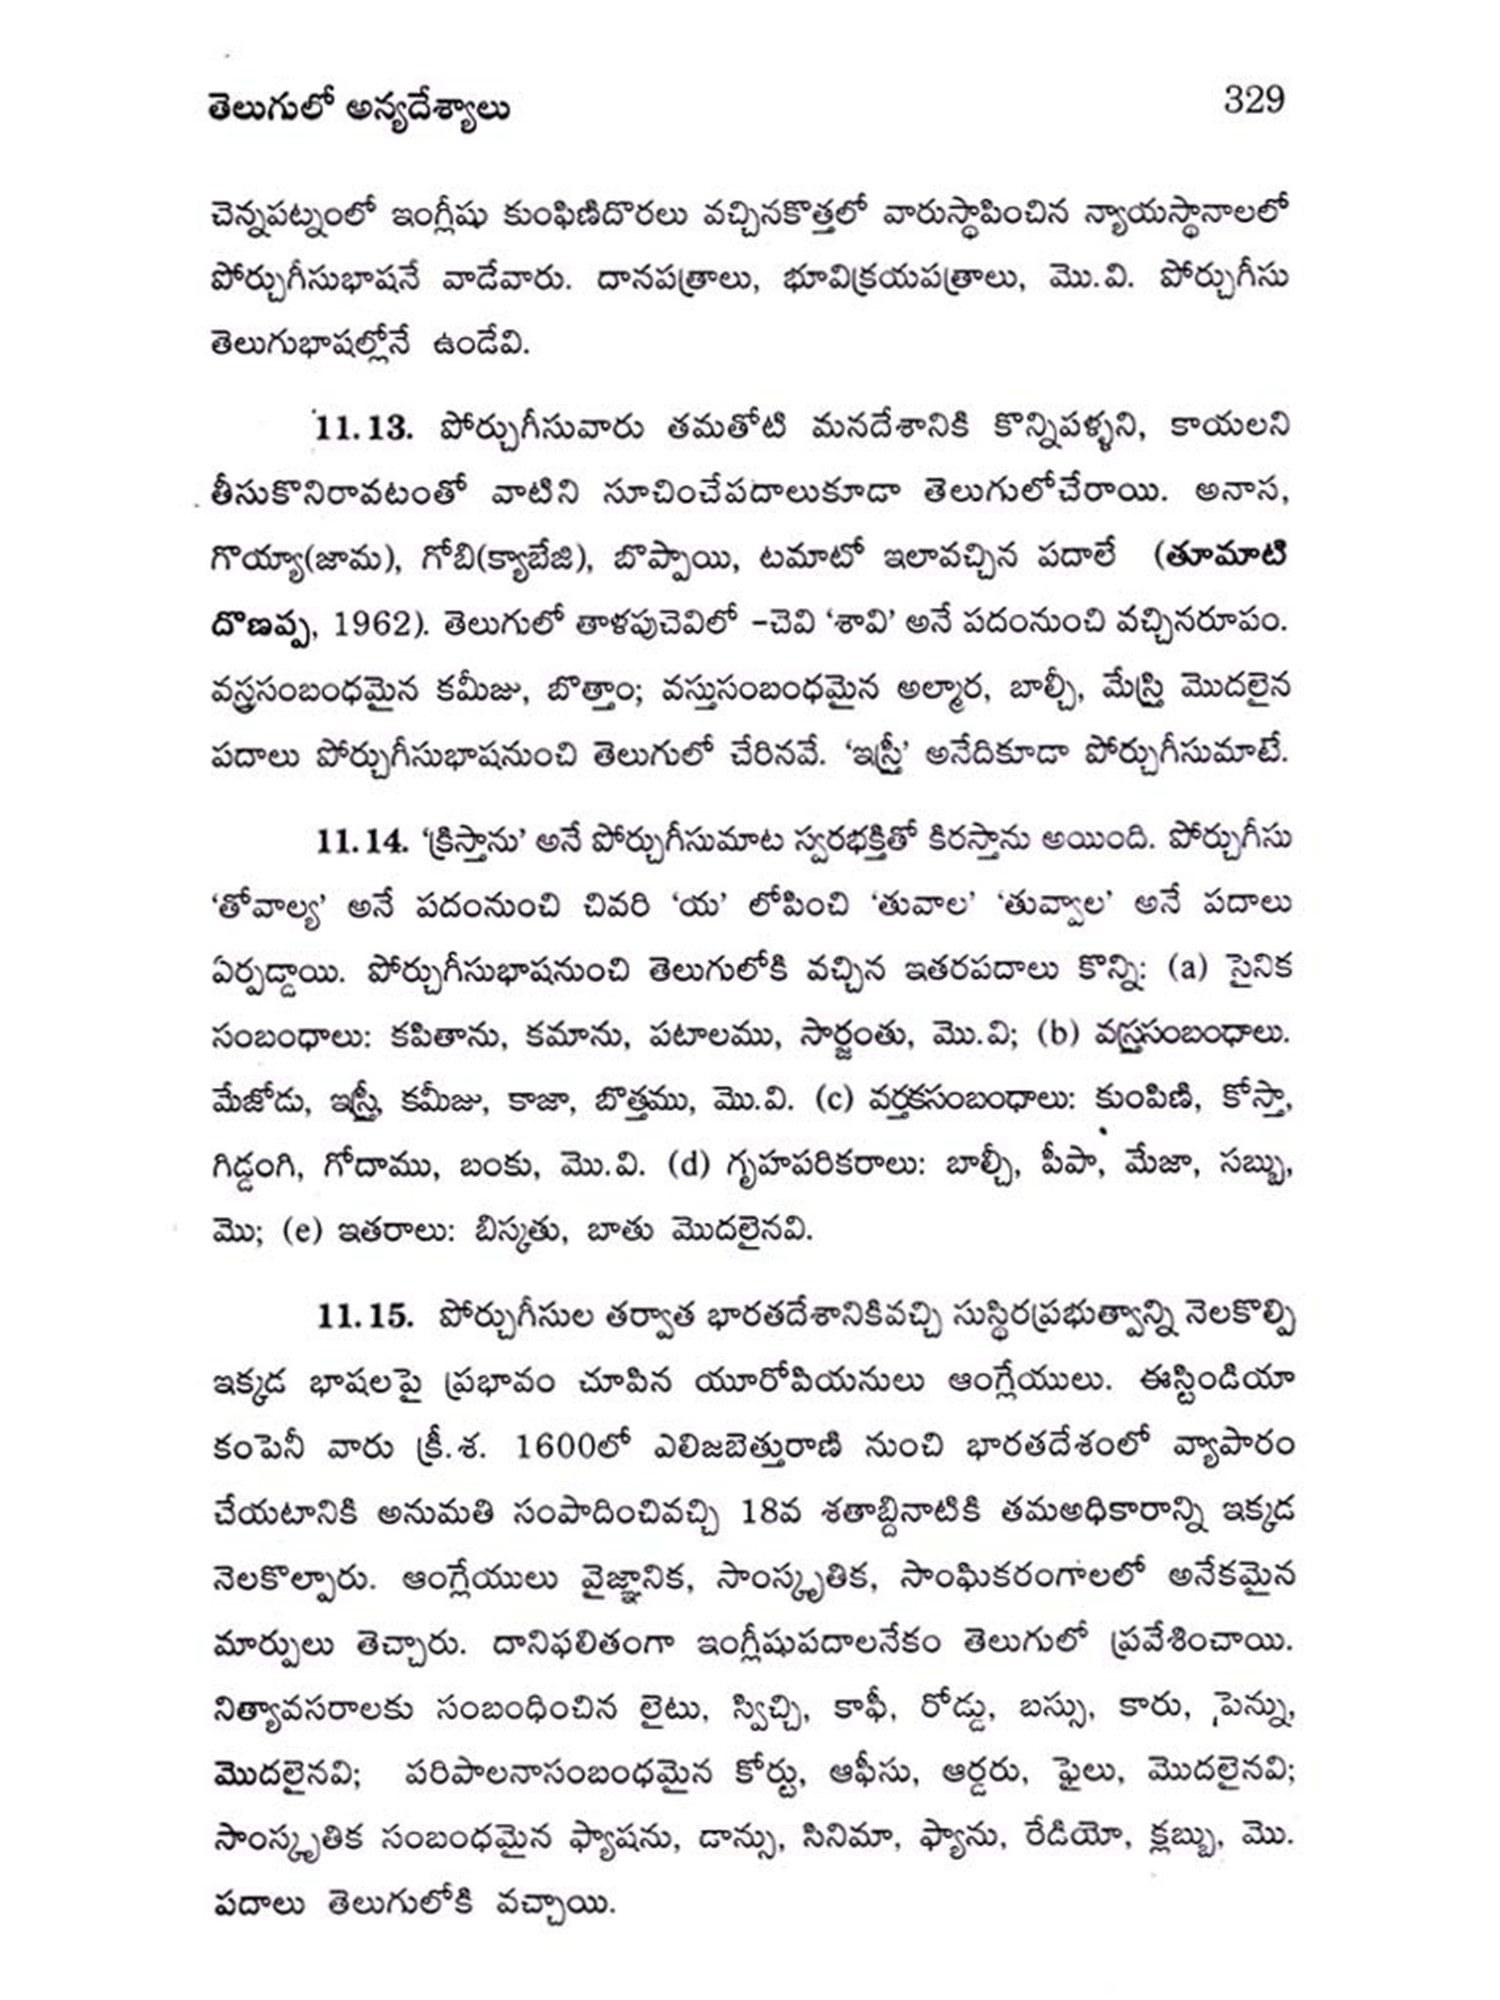 తెలుగులో అన్యదేశ్యాలు 329
చెన్నపట్నంలో ఇంగ్లీషు కుంఫిణిదొరలు వచ్చినకొత్తలో వారుస్థాపించిన న్యాయస్థానాలలో
పోర్చుగీసుభాషనే వాడేవారు. దానపత్రాలు, భూవిక్రయపత్రాలు, మొ.వి. పోర్చుగీసు
తెలుగుభాషల్లోనే ఉండేవి.
11.13. పోర్చుగీసువారు తమతోటి మనదేశానికి కొన్నిపళ్ళని, కాయలని
తీసుకొనిరావటంతో వాటిని సూచించేపదాలుకూడా తెలుగులోచేరాయి. అనాస,
గొయ్యా(జామ), గోబి(క్యాబేజి), బొప్పాయి, టమాటో ఇలావచ్చిన పదాలే (తూమాటి
దొణవ్ప, 1962). తెలుగులో తాళపుచెవిలో –చెవి ‘శావి’ అనే పదంనుంచి వచ్చినరూపం.
వస్త్రసంబంధమైన కమీజు, బొత్తాం; వస్తుసంబంధమైన అల్మార, బాల్చీ, మేస్త్రి మొదలైన
పదాలు పోర్చుగీసుభాషనుంచి తెలుగులో చేరినవే. ‘ఇస్త్రీ’ అనేదికూడా పోర్చుగీసుమాటే.
11.14. ‘క్రిస్తాను’ అనే పోర్చుగీసుమాట స్వరభక్తితో కిరస్తాను అయింది. పోర్చుగీసు
‘తోవాల్య’ అనే పదంనుంచి చివరి ‘య’ లోపించి ‘తువాల’ ‘తువ్వాల’ అనే పదాలు
ఏర్పడ్డాయి. పోర్చుగీసుభాషనుంచి తెలుగులోకి వచ్చిన ఇతరపదాలు కొన్ని: (a) సైనిక
సంబంధాలు: కపితాను, కమాను, పటాలము, సార్జంతు, మొ.వి; (b) వస్త్రసంబంధాలు.
మేజోడు, ఇస్త్రీ, కమీజు, కాజా, బొత్తము, మొ.వి. (c) వర్తకసంబంధాలు: కుంపిణి, కోస్తా,
గిడ్డంగి, గోదాము, బంకు, మొ.వి. (d) గృహపరికరాలు: బాల్చీ, పీపా, మేజా, సబ్బు,
మొ; (e) ఇతరాలు: బిస్కతు, బాతు మొదలైనవి.
11.15. పోర్చుగీసుల తర్వాత భారతదేశానికివచ్చి సుస్థిరప్రభుత్వాన్ని నెలకొల్పి
ఇక్కడ భాషలపై ప్రభావం చూపిన యూరోపియనులు ఆంగ్లేయులు. ఈస్టిండియా
కంపెనీ వారు క్రీ.శ. 1600లో ఎలిజబెత్తురాణి నుంచి భారతదేశంలో వ్యాపారం
చేయటానికి అనుమతి సంపాదించివచ్చి 18వ శతాబ్దినాటికి తమఅధికారాన్ని ఇక్కడ
నెలకొల్పారు. ఆంగ్లేయులు వైజ్ఞానిక, సాంస్కృతిక, సాంఘికరంగాలలో అనేకమైన
మార్పులు తెచ్చారు. దానిఫలితంగా ఇంగ్లీషుపదాలనేకం తెలుగులో ప్రవేశించాయి.
నిత్యావసరాలకు సంబంధించిన లైటు, స్విచ్చి, కాఫీ, రోడ్డు, బస్సు, కారు, పెన్ను,
మొదలైనవి; పరిపాలనాసంబంధమైన కోర్టు, ఆఫీసు, ఆర్డరు, ఫైలు, మొదలైనవి;
సాంస్కృతిక సంబంధమైన ఫ్యాషను, డాన్సు, సినిమా, ఫ్యాను, రేడియో, క్లబ్బు, మొ.
పదాలు తెలుగులోకి వచ్చాయి.